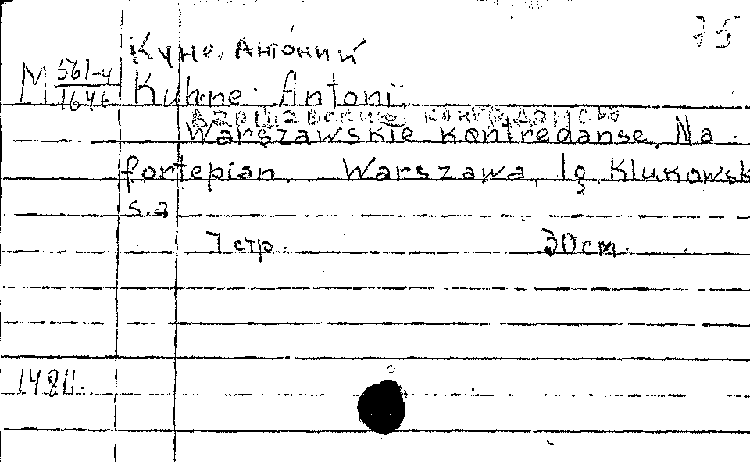 75
Куне, Антоний
М 561-4/1646 Kuhne Antoni.
Варшавские контрдансы
Warszawskie kontredanse. Na
fortepian. Warszawa, Klukowsk
s.a
7 стр. 30 cm.